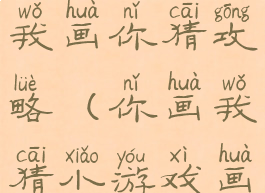 wǒ huà nǐ cāi gōng
我画你猜攻
lüè nǐ huà wǒ
略（你画我
cāi xiǎo yóu xì huà
猜小游戏画